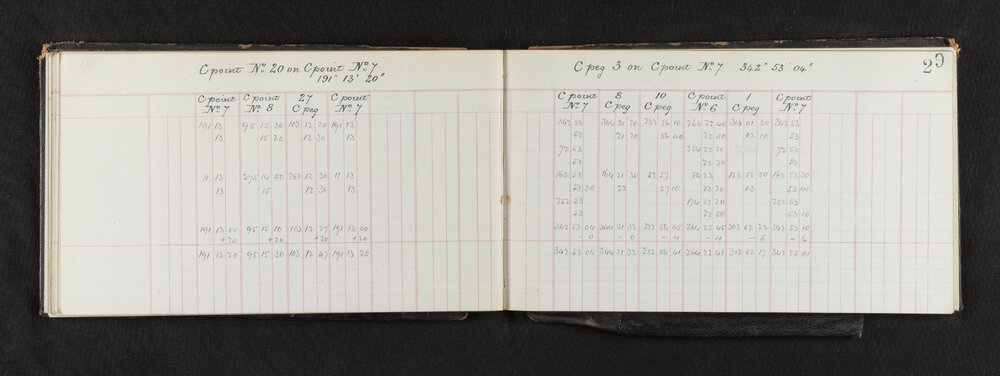 C point No 20 on C point No 7
191° 13' 20"
C point No 7 | C point No 8 | 27 C peg | C point No 7
191 13 | 95 15 30 | 103 12 20 | 191 13
13 | 15 26 | 12 30 | 13
11 13 | 275 14 50 | 283 12 30 | 11 13
13 | 15 | 12 30 | 13
191 13 00 | 95 15 10 | 103 12 27 | 191 13 00
+20 | +20 | +20 | +20
191 13 20 | 95 15 30 | 103 12 47 | 191 13 20
29
C peg 3 on C point No 7 342° 53' 04"
C point No 7 | 8 C peg | 10 C peg | C point No 6 | 1 C peg | C point No 7
342 53 | 344 21 20 | 232 56 10 | 264 22 40 | 303 01 30 | 342 53
53 | 21 20 | 56 40 | 22 50 | 02 10 | 53
72 53 | 354 22 30 | 72 53
53 | 22 30 | 53
162 53 | 164 21 30 | 52 57 | 84 22 | 123 02 50 | 162 53 30
53 30 | 22 | 57 10 | 23 20 | 03 | 53 45
252 53 | 174 22 20 | 252 53
53 | 22 50 | 53 10
342 53 04 | 344 21 32 | 232 56 45 | 264 22 45 | 303 02 22 | 342 53 10
- 0 | - 0 | - 4 | - 4 | - 5 | - 6
342 53 04 | 344 21 32 | 232 56 41 | 264 22 41 | 303 02 17 | 342 53 04